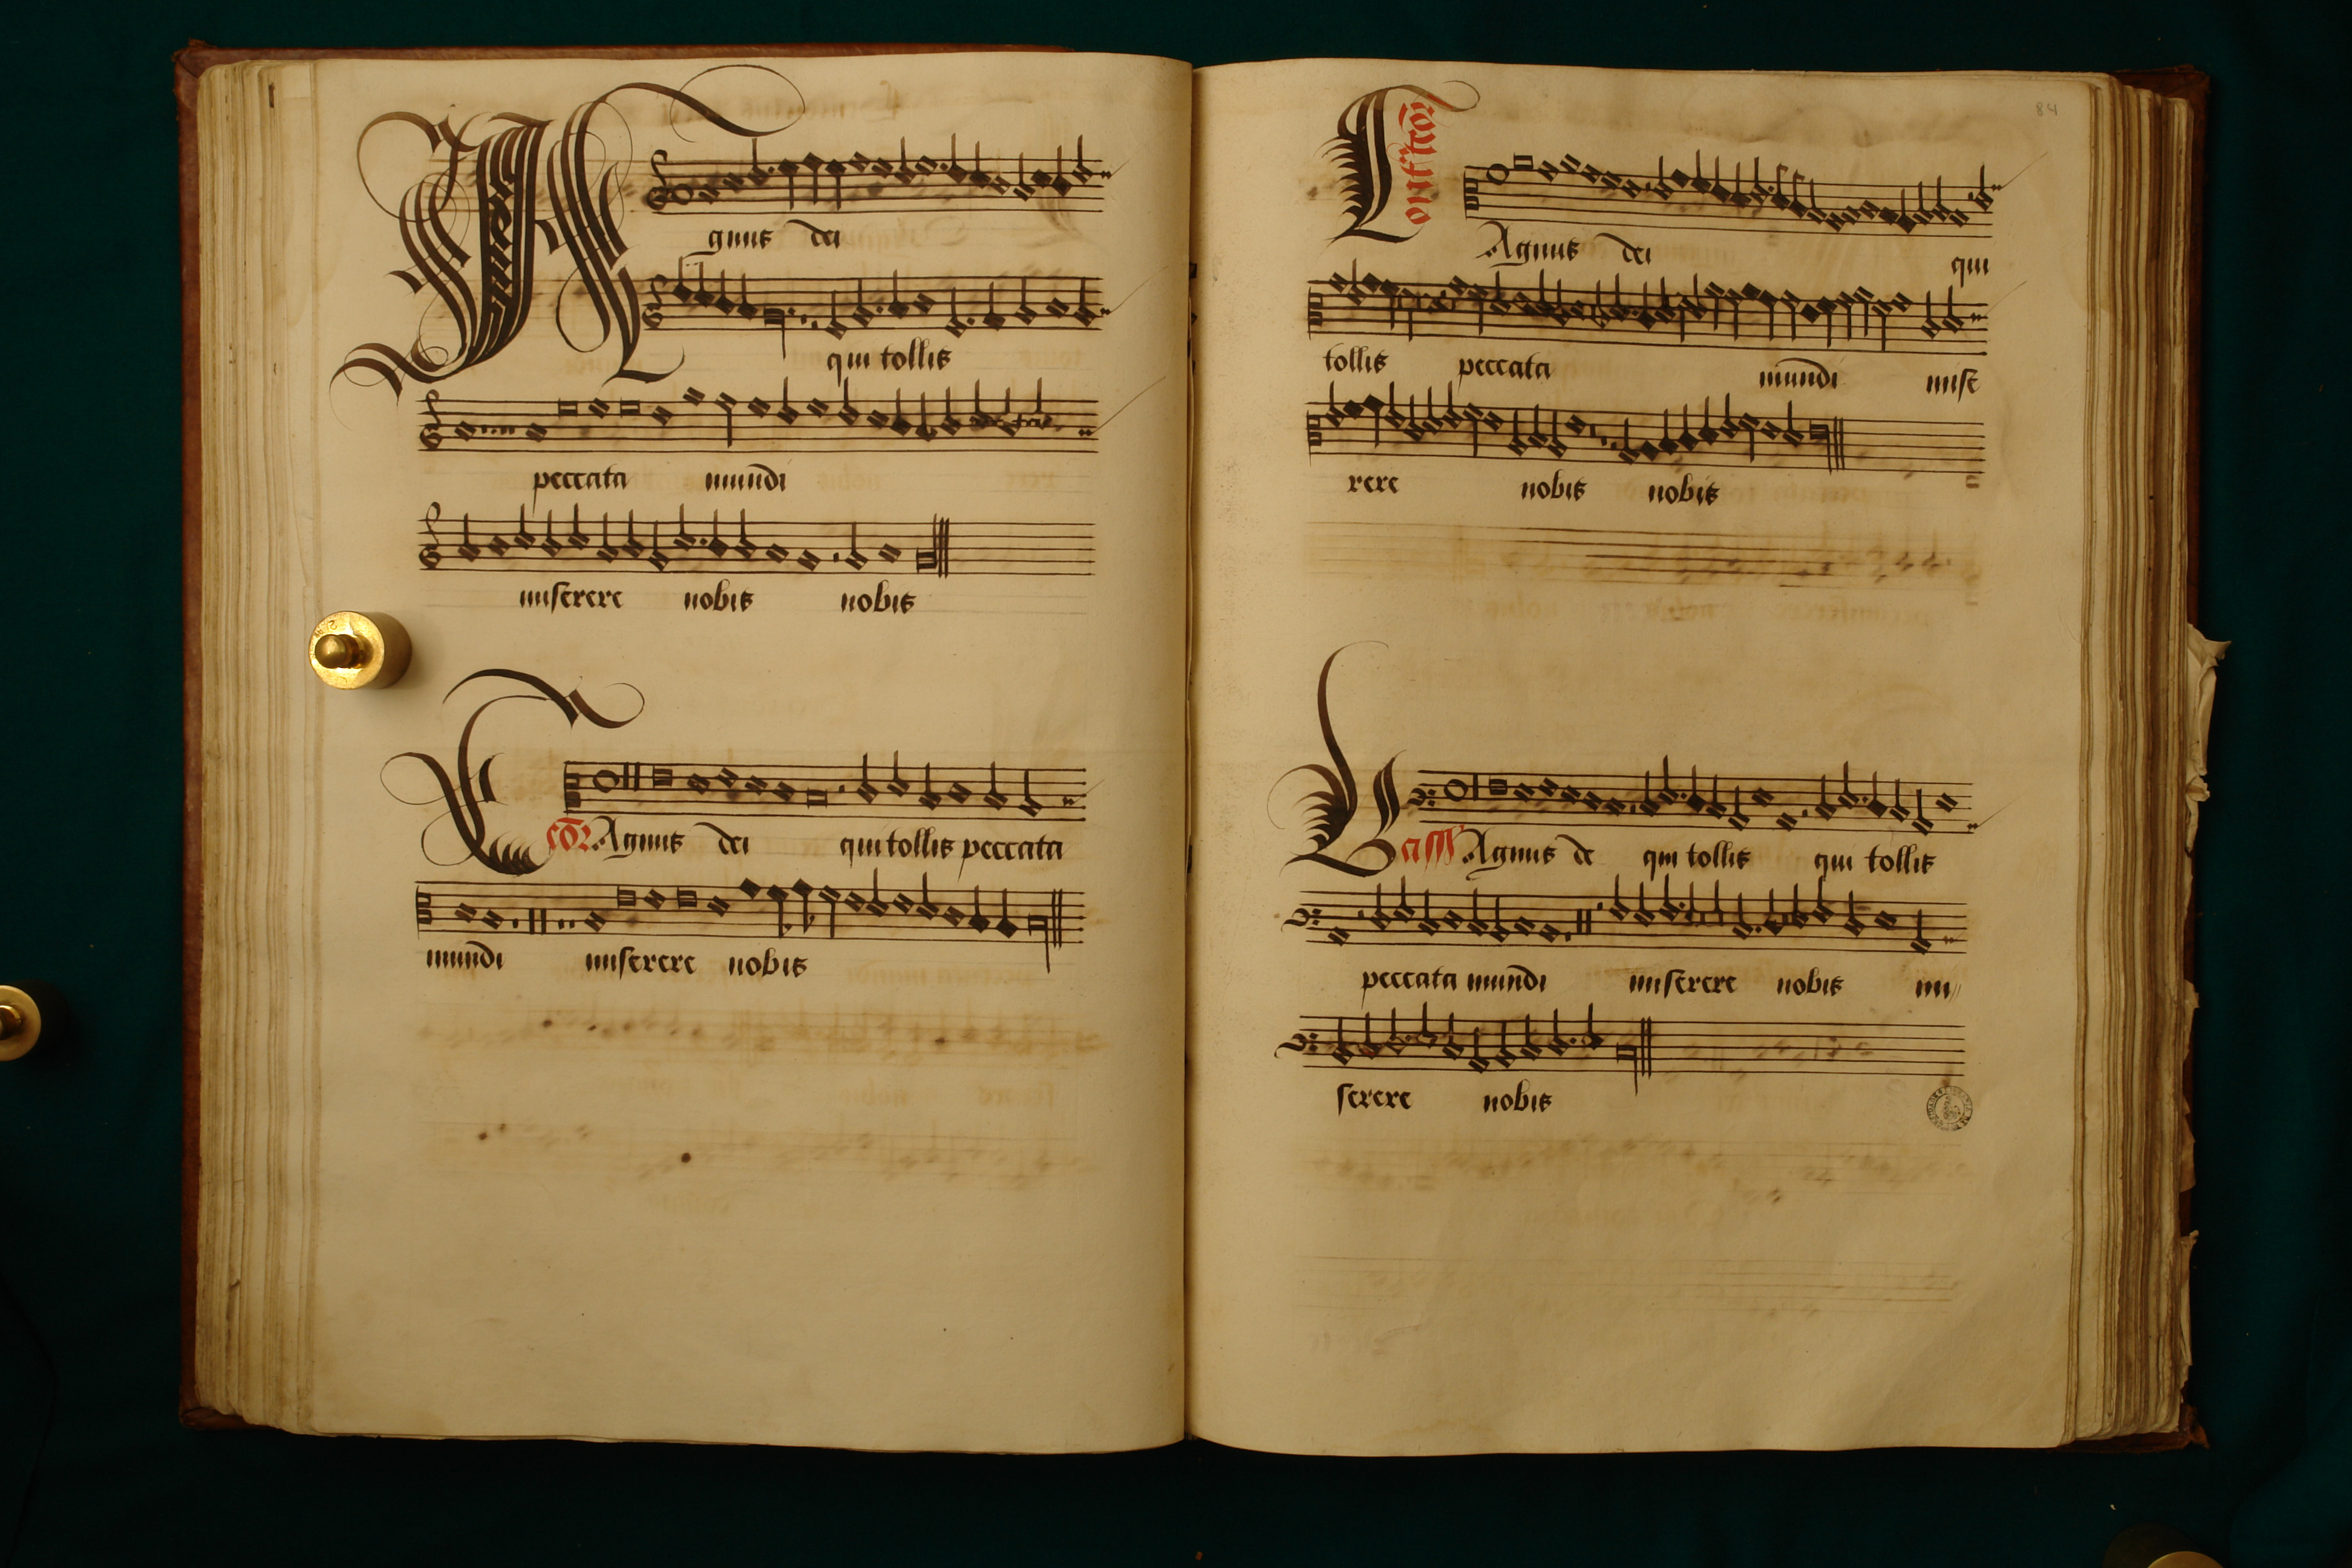 Agnus dei
qui tollis
peccata mundi
miserere nobis nobis
Agnus dei qui tollis peccata
mundi miserere nobis
84
Agnus dei qui
tollis peccata mundi mise
rere nobis nobis
Bass Agnus de qui tollis qui tollis
peccata mundi miserere nobis mi
serere nobis